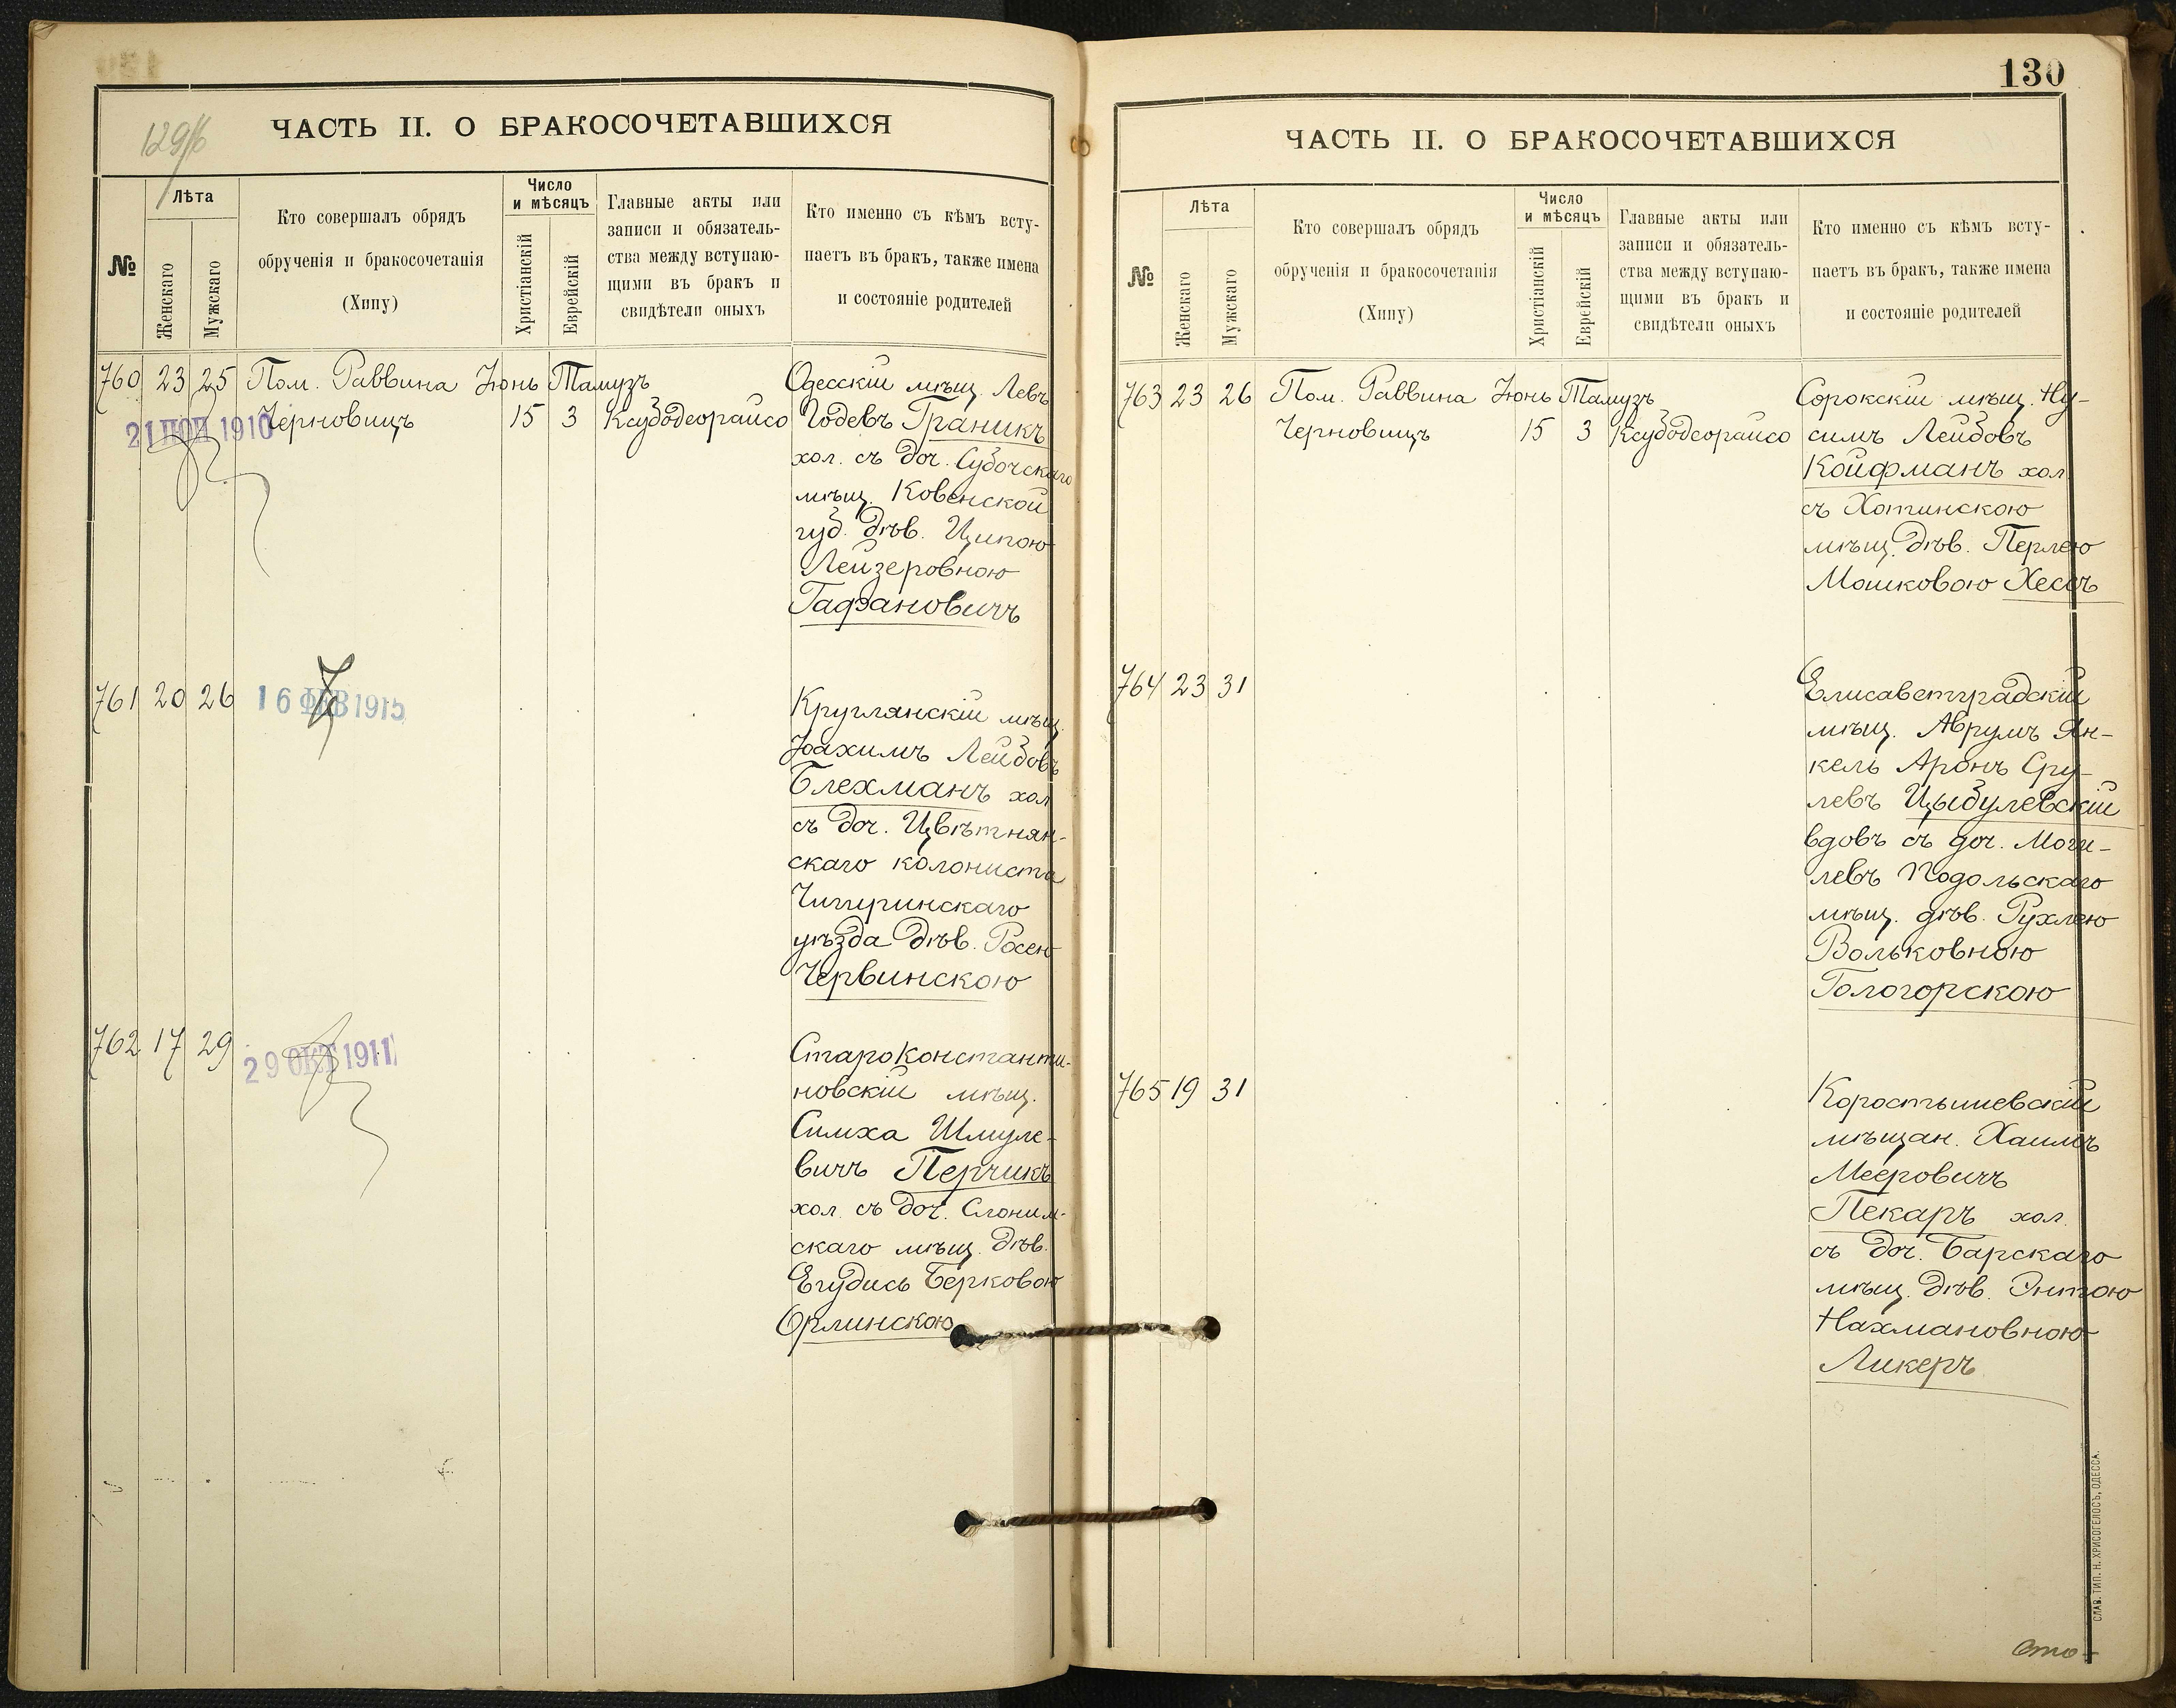 129/б
ЧАСТЬ II. О БРАКОСОЧЕТАВШИХСЯ
№
Лѣта
Женскаго
Мужскаго
Кто совершалъ обрядъ
обрученія и бракосочетанія
(Хипу)
Число
и мѣсяцъ
Христіанскій
Еврейскій
Главные акты или
записи и обязатель-
ства между вступаю-
щими въ бракъ и
свидѣтели оныхъ
Кто именно съ кѣмъ всту-
паетъ въ бракъ, также имена
и состояніе родителей
760 23 25 Пом. Раввина Іюнь Тамузъ Одесскій мѣщ. Левъ
21 1910 Черновицъ 15 3 Ксубодеорайсо Іодевъ Граникъ
хол. съ доч. Субочскаго
мѣщ. Ковенской
губ. дѣв. Ципою
Лейзеровною
Гафановичъ
761 20 26 16 ФЕВ 1915 Круглянскій мѣщ.
Іоахимъ Лейбовъ
Блехманъ хол
съ доч. Цвѣтнян-
скаго колониста
Чигиринскаго
уѣзда дѣв. Росею
Червинскою
762 17 29 29 ОКТ 1911 Староконстанти-
новскій мѣщ.
Симха Шмуле-
вичъ Перчикъ
хол. съ доч. Слоним-
скаго мѣщ. дѣв.
Егудись Берковою
Орлинскою
130
ЧАСТЬ II. О БРАКОСОЧЕТАВШИХСЯ
№
Лѣта
Женскаго
Мужскаго
Кто совершалъ обрядъ
обрученія и бракосочетанія
(Хипу)
Число
и мѣсяцъ
Христіанскій
Еврейскій
Главные акты или
записи и обязатель-
ства между вступаю-
щими въ бракъ и
свидѣтели оныхъ
Кто именно съ кѣмъ всту-
паетъ въ бракъ, также имена
и состояніе родителей
763 23 26 Пом. Раввина Іюнь Тамузъ Сорокскій мѣщ. Ну-
Черновицъ 15 3 Ксубодеорайсо симъ Лейбовъ
Койфманъ хол
съ Хотинскою
мѣщ. дѣв. Перлею
Мошковою Хессъ
764 23 31 Елисаветградскій
мѣщ. Аврумъ Ян-
кель Аронъ Сру-
левъ Цыбулевскій
вдовъ съ доч. Моги-
левъ Подольскаго
мѣщ. дѣв. Рухлею
Вольковною
Гологорскою
765 19 31 Коростышевскій
мѣщан. Хаимъ
Мееровичъ
Пекаръ хол.
съ доч. Барскаго
мѣщ. дѣв. Энтою
Нахмановною
Ликеръ
СЛАВ. ТИП. Н. ХРИСОГЕЛОСЪ, ОДЕССА.